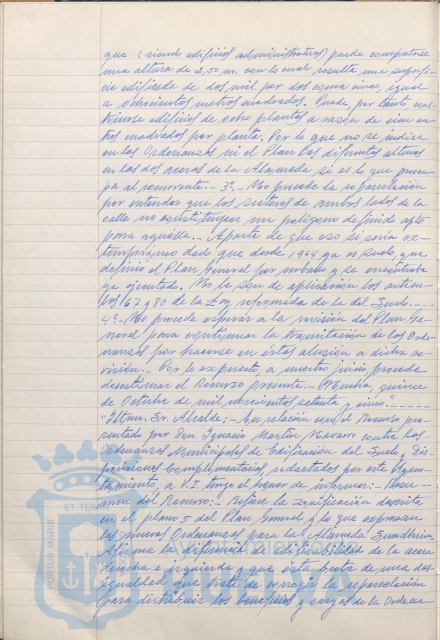 que (siendo edificios administrativos) puede computarse
una altura de 2,50 m. con lo cual resulta una superfi-
cie edificada de dos mil por dos coma cinco, igual
a ochocientos metros cuadrados. Puede, por tanto cons-
truirse edificios de ocho plantas a razón de cien me-
tros cuadrados por planta. Por lo que no se indica
en las Ordenanzas ni el Plan las diferentes alturas
en las dos aceras de la Alameda si es lo que preocu-
pa al recurrente.- 3º- No procede la reparcelación
por entender que los sectores de ambos lados de la
calle no constituyen un polígono definido apto
para aquella.- Aparte de que eso si sería ex-
temporáneo dado que desde 1964 ya es suelo, que
definió el Plan General por urbano y se encontraba
ya ejecutado. No le son de aplicación los artícu-
los 67 y 80 de la Ley reformada de la del Suelo.-
4º- No procede esperar a la revisión del Plan Ge-
neral para continuar la tramitación de las Orde-
nanzas por hacerse en éstas alusión a dicha re-
visión.- Por lo expuesto, a nuestro juicio procede
desestimar el Recurso presente.- Huelva, quince
de Octubre de mil novecientos setenta y cinco".-
"Iltmo. Sr. Alcalde:- En relación con el Recurso pre-
sentado por Don Ignacio Martín Navarro contra las
Ordenanzas Municipales de Edificación del Suelo y Dis-
posiciones Complementarias redactadas por este Ayun-
tamiento a V.I. tengo el honor de informar:- Resu-
men del Recurso:- Refiere la zonificación descrita
en el plano 5 del Plan General y lo que expresan
las nuevas Ordenanzas para la Alameda Sundheim.
Afirma la diferencia de edificabilidad de la acera
derecha e izquierda y que ésta brota de una des-
igualdad que trata de corregir la reparcelación
para distribuir los beneficios y cargas de la Ordena-
PORTUS MARIS
ET TERRAE